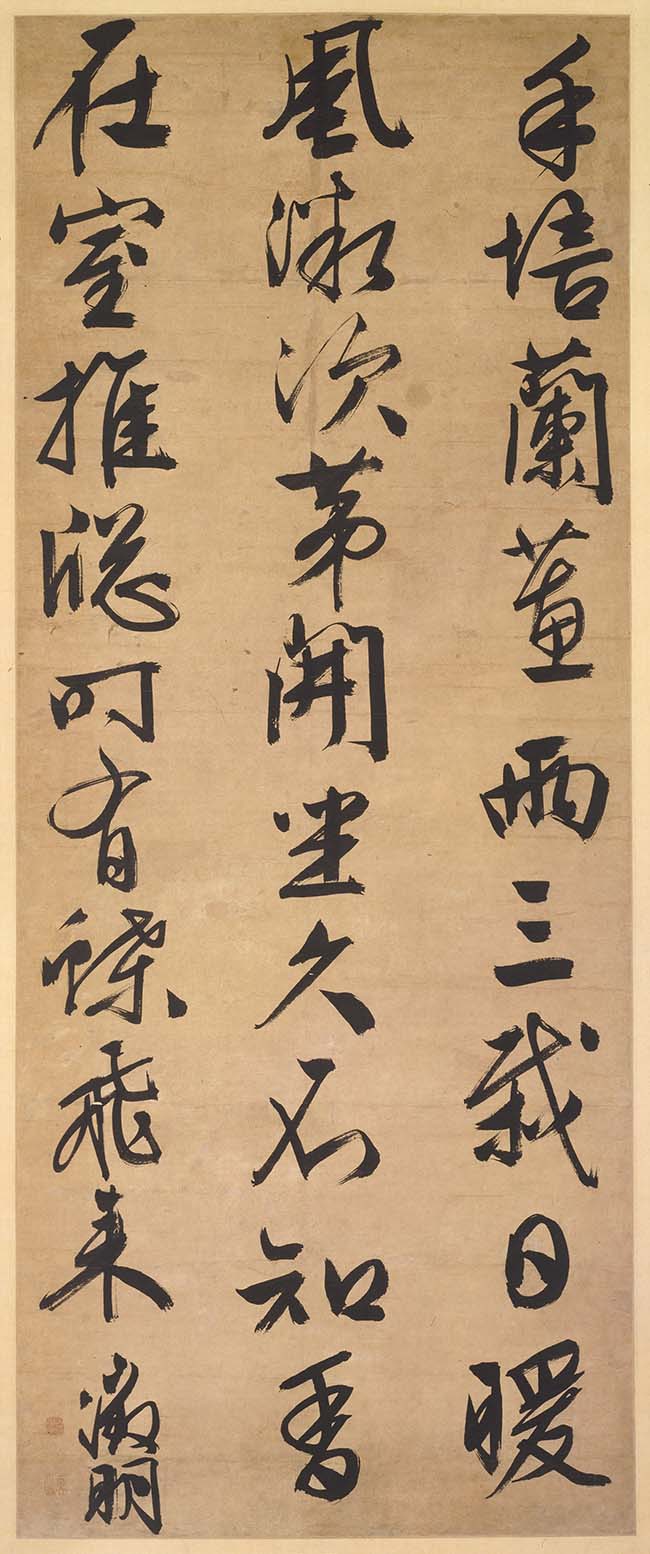 手培蘭蕙兩三栽日暖
風微次第開坐久不知香
在室推窓時有蝶飛來
徵明